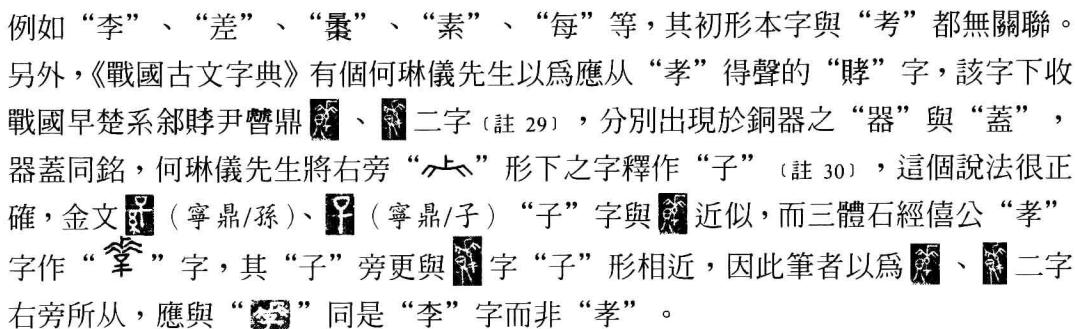 例如“李”、“差”、“㬥”、“素”、“每”等，其初形本字與“考”都無關聯。
另外，《戰國古文字典》有個何琳儀先生以爲應从“孝”得聲的“䝬”字，該字下收
戰國早楚系䣄䝬尹朁鼎、二字〔註 29〕，分別出現於銅器之“器”與“蓋”，
器蓋同銘，何琳儀先生將右旁“”形下之字釋作“子”〔註 30〕，這個說法很正
確，金文（寧鼎/孫）、（寧鼎/子）“子”字與近似，而三體石經僖公“孝”
字作“”字，其“子”旁更與字“子”形相近，因此筆者以爲、二字
右旁所从，應與“”同是“李”字而非“孝”。